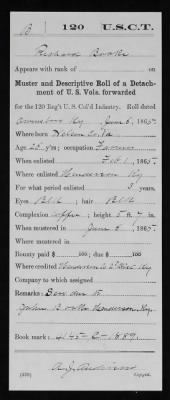 B | 120 | U.S.C.T.
Richard Booker
Appears with rank of
Muster and Descriptive Roll of a Detach-
ment of U. S. Vols. forwarded
for the 120 Reg't U.S. Col'd Infantry. Roll dated
Ky June 6, 1865.
Where born Nelson Co. Va
Age 25 y'rs; occupation Farmer
When enlisted Feb 1, 1865.
Where enlisted Henderson Ky
For what period enlisted 3 years.
Eyes Blk; hair Blk
Complexion copper; height 5 ft. 4 in.
When mustered in June 6, 1865.
Where mustered in
Bounty paid $ 100; due $ 100
Where credited Henderson Ky
Company to which assigned
Remarks:
John Booker Henderson Ky.
Book mark: 445-C-1889
Copyist.